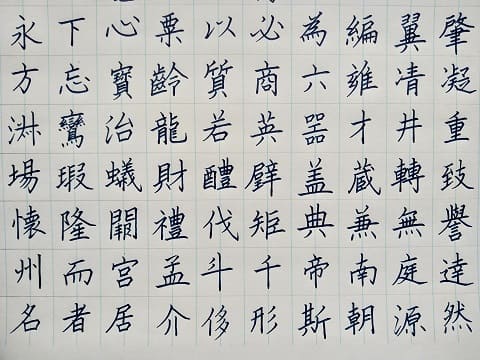 永下心粟以必為編翼肇
方忘寶齡質商六凊凝
鸞治龍若英器才井重
場瑕蟻財醴盖蔵轉致
懷隆禮伐矩典兼無譽
州而宮孟斗千帝南庭達
名者居介侈形斯朝源然